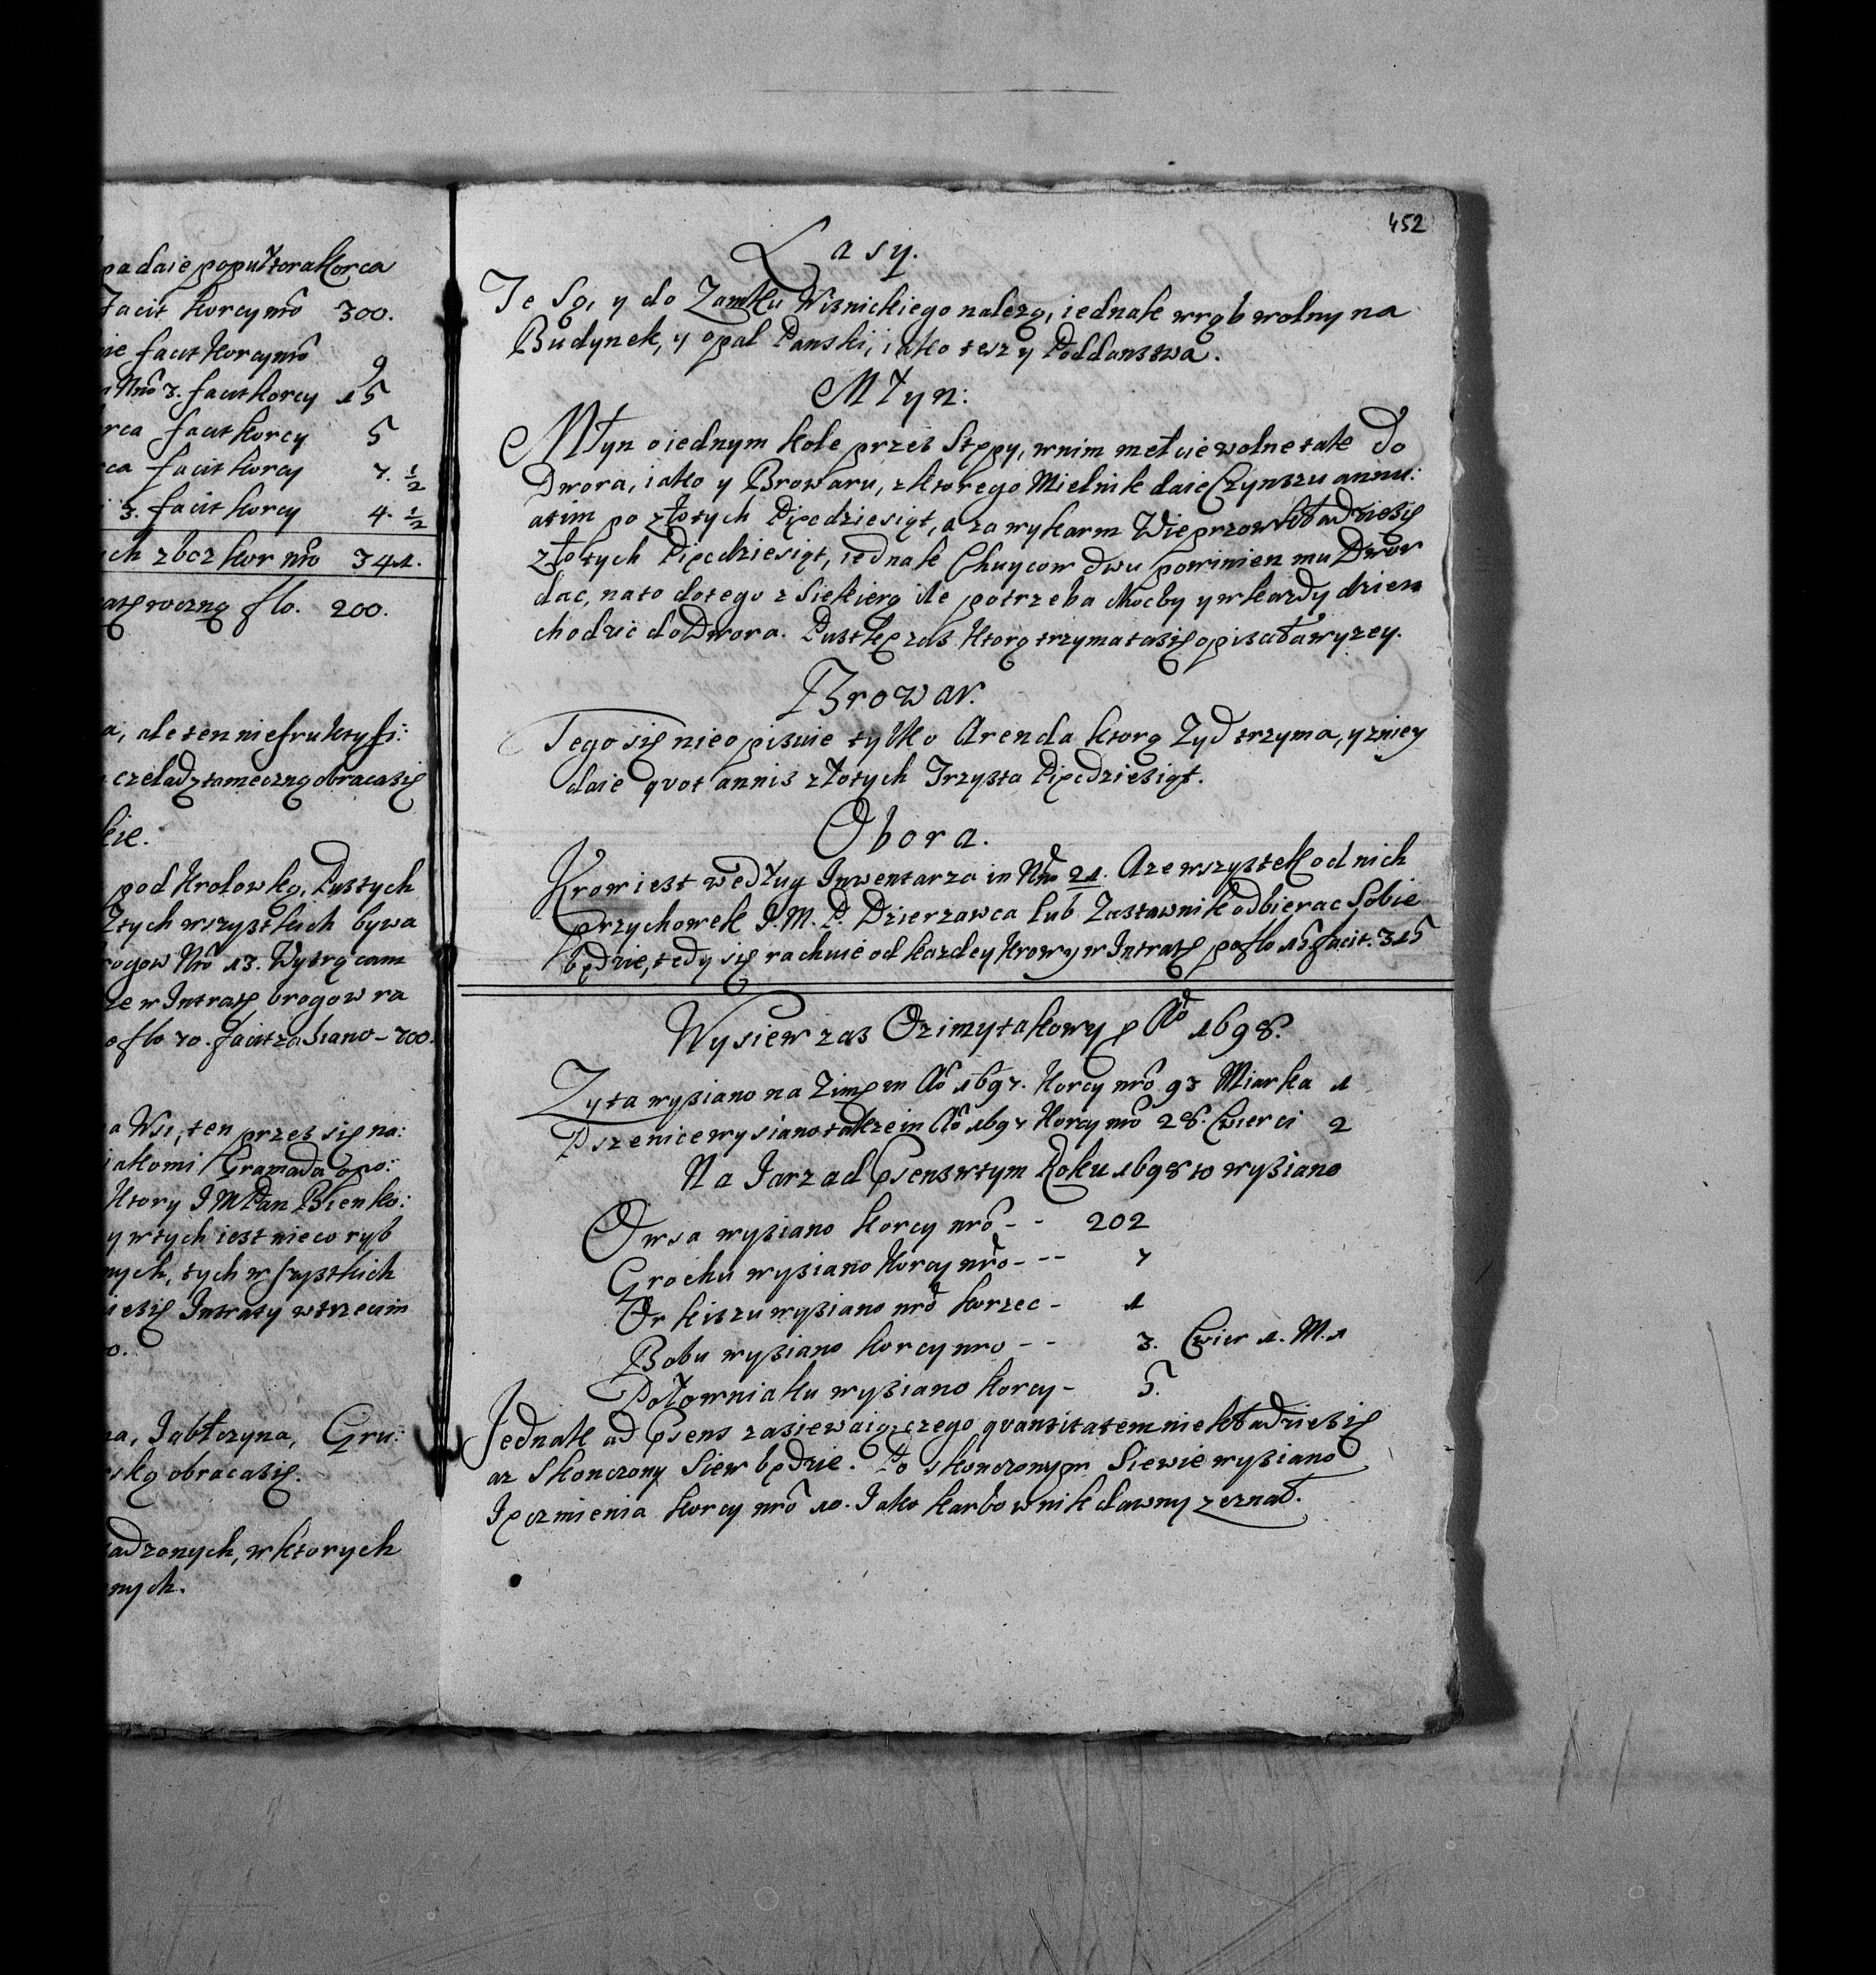 pa daie popułtora Korca
Facit Korcy nrō 300.
ie facit Korcy nrō 9
Nrō 3. facit korcy 15
rca facit korcy 5
ca facit korcy 7. 1/2
3. facit korcy 4. 1/2
ch zboz kor nrō 341.
atę roczną flo. 200.
a, ale ten nie fruktyfi:
czeladz tameczną obraca się
kie.
pod Krolowką, Pustych
Z tych wszystkich bywa
rogow Nrō 13. Wytrącam
ze w Intratę brogow ra
o flo 70. facit za Siano - 700.
a Wsi, ten przez się na:
iakomi Gramada opo:
Ktory JMPan Bienko:
y w tych iest nieco ryb
nych, tych wszystkich
ie się Intraty w trzecim
o.
na, Jabłczyna, Gru:
ską obraca się.
adzonych, w ktorych
nych.
452
Lasy.
Te Są, y do Zamku Wisnickiego nalezą, iednak wrąb wolny na
Budynek, y opał Panski, iako tesz y Poddanstwa.
Młyn:
Młyn o iednym kole przes Stępy, w nim mełcie wolne tak do
Dwora, iako y Browaru, z ktorego Mielnik daie Czynszu annu:
atim po złotych Pięcdziesiąt, a za wykarm Wieprzow kładzie się
złotych Pięcdziesiąt, iednak Chuycow dwu powinien mu Dwor
dac, na to do tego z Siekierą ile potrzeba chocby y w kazdy dzien
chodzic do Dwora. Pustkę zas Ktorą trzyma ta się opisała wyzey.
Browar.
Tego się nie opisuie tylko Arenda ktorą Zyd trzyma, y z niey
daie quot annis złotych Trzysta Pięcdziesiąt.
Obora.
Krow iest według Inwentarza in Nrō 21. A ze wszystek od nich
Przychowek J.M.P. Dzierzawca lub Zastawnik odbierac Sobie
będzie, tedy się rachuie od kazdey Krowy w Intratę po flo 15 facit. 315
Wysiew zas Ozimy takowy p Aō 1698.
Zyta wysiano na Zimę in Aō 1697. Korcy nrō 93 Miarka 1
Pszenice wysiano takze in Aō 1697 Korcy nrō 28. Cwierci 2
Na Jarz ad Psens w tym Roku 1698 to wysiano
Owsa wysiano korcy nrō - - 202
Grochu wysiano Korcy nrō - - - 7
Orkiszu wysiano nrō korzec - 1
Bobu wysiano korcy nro - - 3. Cwier 1. M. 1
Połowniaku wysiano korcy - 5.
Jednak ad Psens zasiewaią, czego quantitatem nie kładzie się
az Skonczony Siew będzie. Po skonczonym Siewie wysiano
Jęczmienia korcy nrō 10. Jako karbownik dawny zeznał.